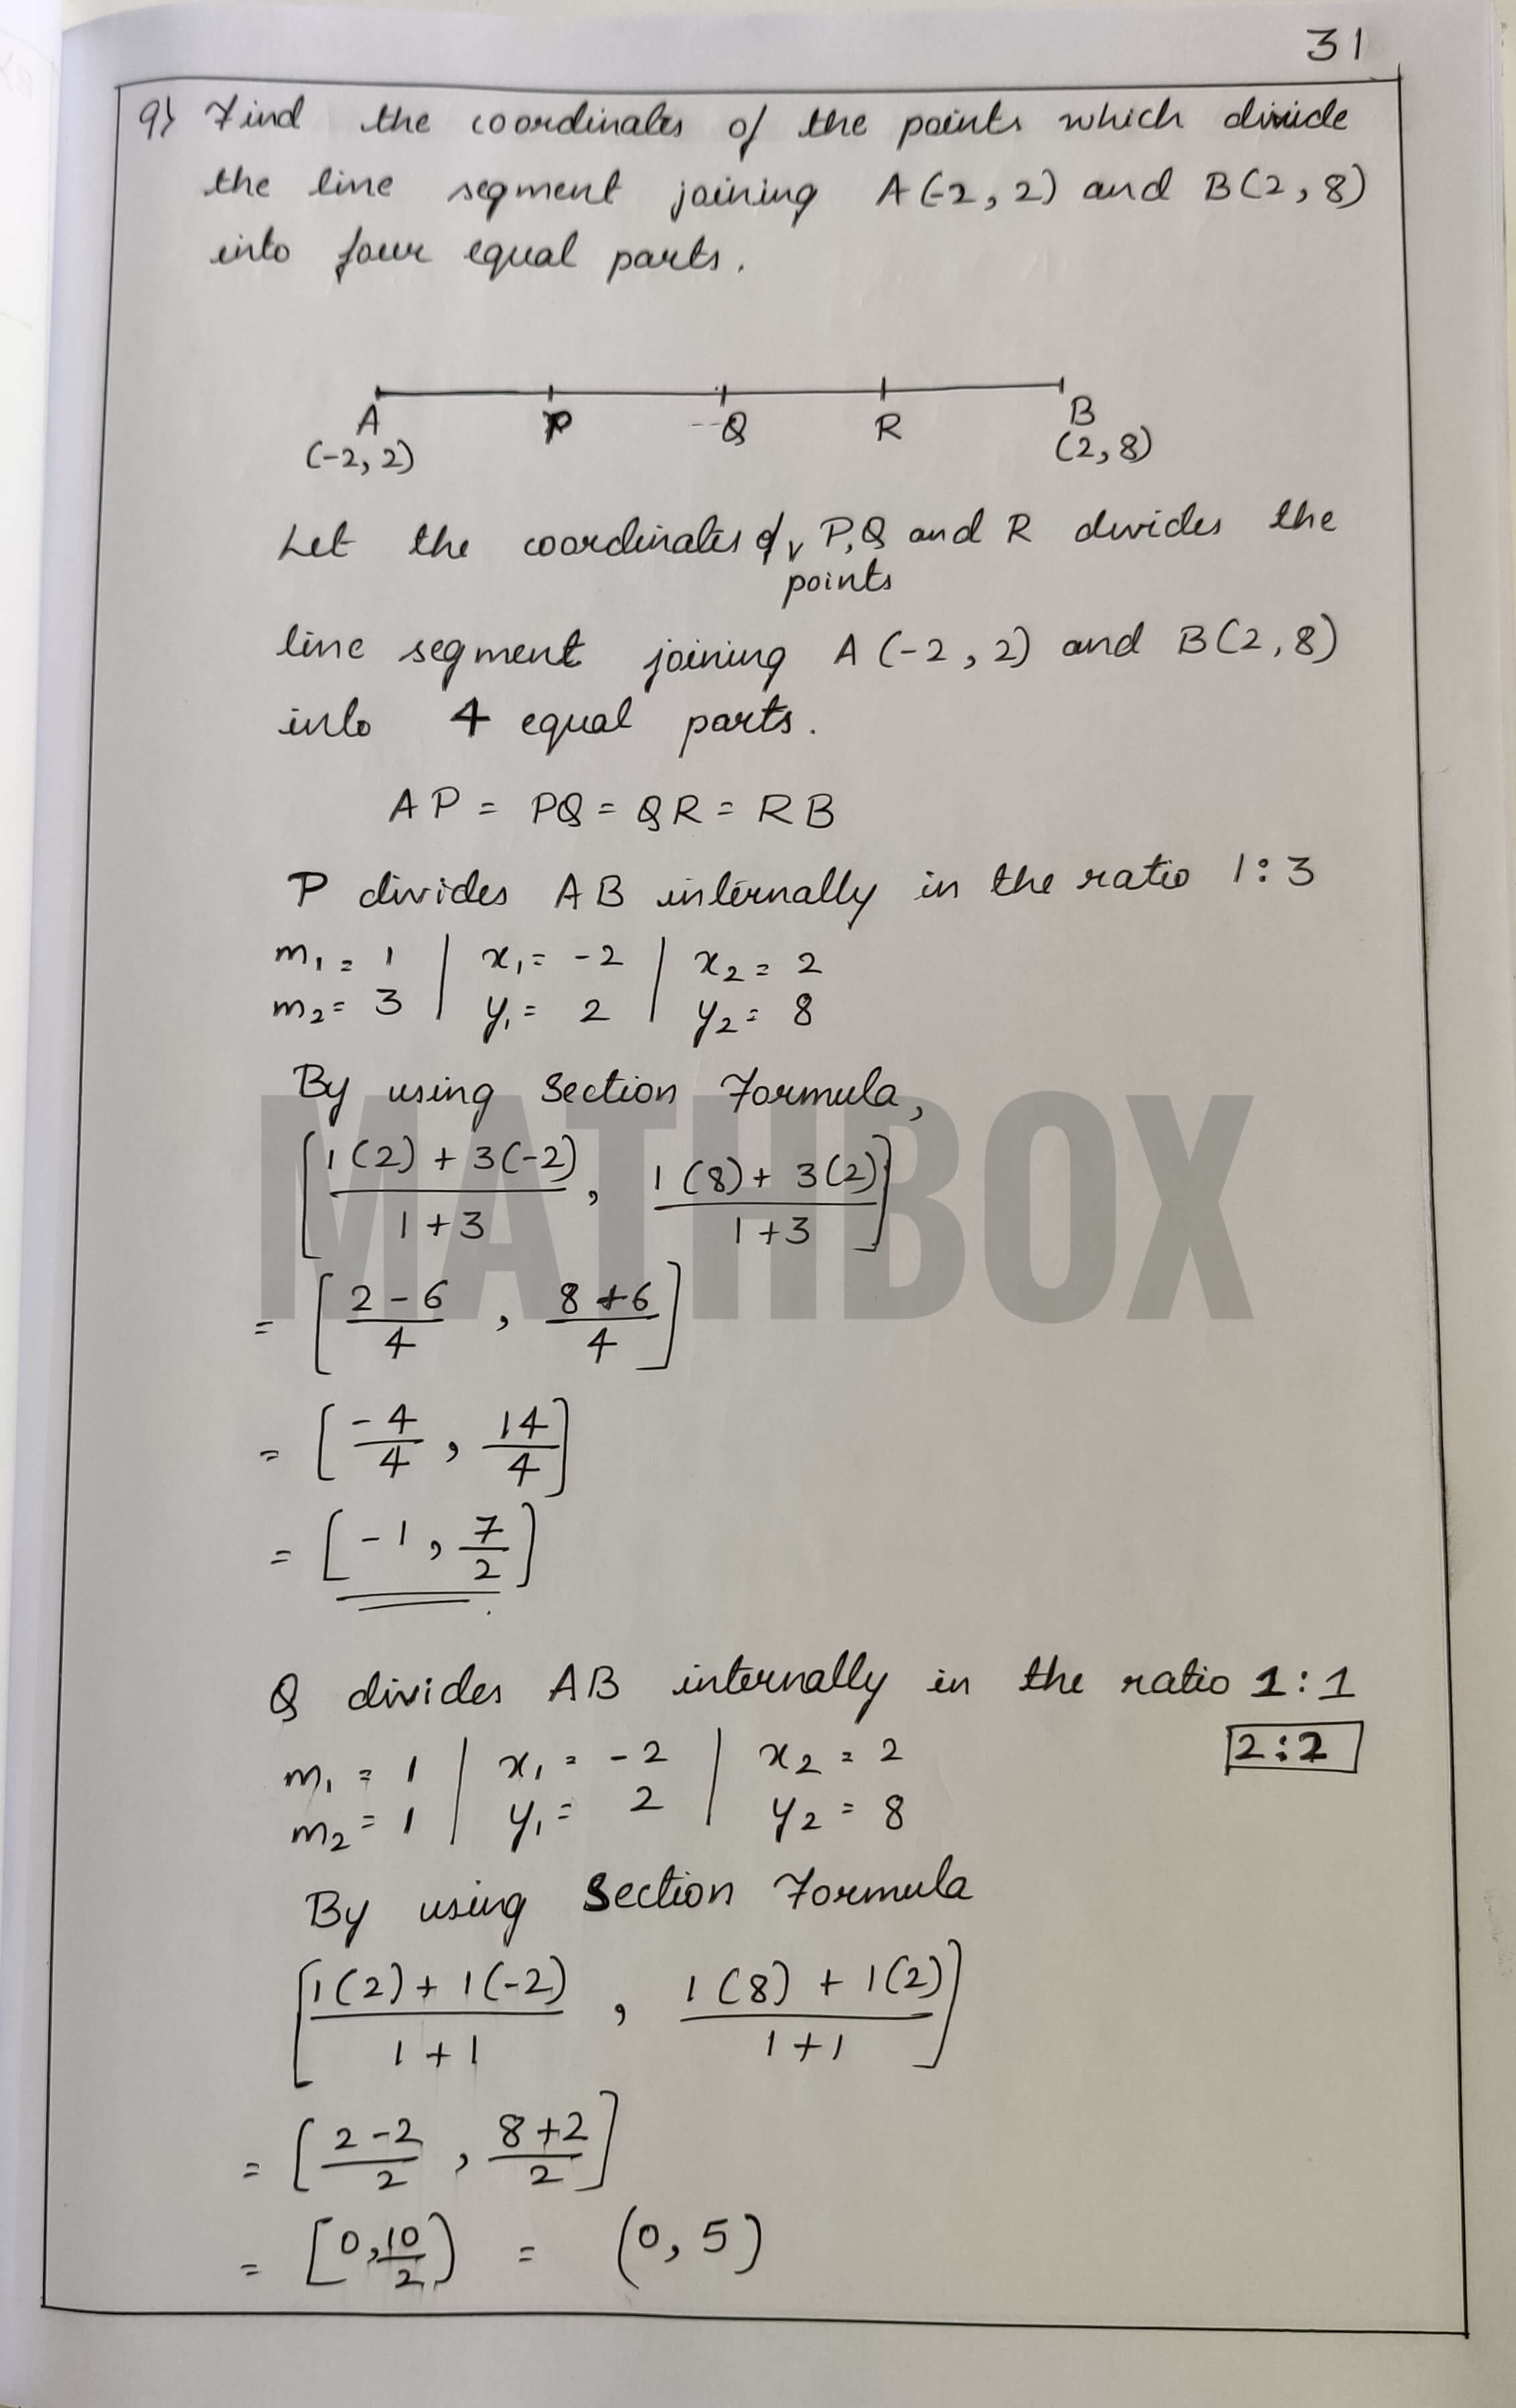 31
9) Find the coordinates of the points which divide
the line segment joining A(-2, 2) and B(2, 8)
into four equal parts.
A P Q R B
(-2, 2) (2, 8)
Let the coordinates of ∨ P, Q and R divides the
points
line segment joining A(-2, 2) and B(2, 8)
into 4 equal parts.
AP = PQ = QR = RB
P divides AB internally in the ratio 1:3
m₁ = 1 | x₁ = -2 | x₂ = 2
m₂ = 3 | y₁ = 2 | y₂ = 8
By using Section Formula,
[ (1(2) + 3(-2))/(1+3) , (1(8) + 3(2))/(1+3) ]
MATHBOX
= [ (2-6)/4 , (8+6)/4 ]
= [ -4/4 , 14/4 ]
= [ -1 , 7/2 ]
Q divides AB internally in the ratio 1:1
2:2
m₁ = 1 | x₁ = -2 | x₂ = 2
m₂ = 1 | y₁ = 2 | y₂ = 8
By using Section Formula
[ (1(2) + 1(-2))/(1+1) , (1(8) + 1(2))/(1+1) ]
= [ (2-2)/2 , (8+2)/2 ]
= [ 0, 10/2 ) = (0, 5)